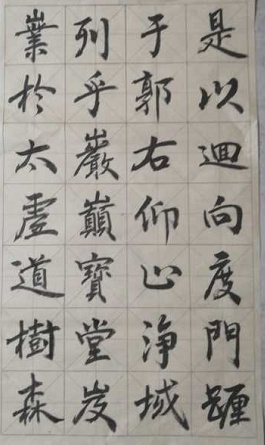 是以迴向度門
于郭右仰止淨域
列乎巖巔寶堂岌
嶪於太虛道樹森